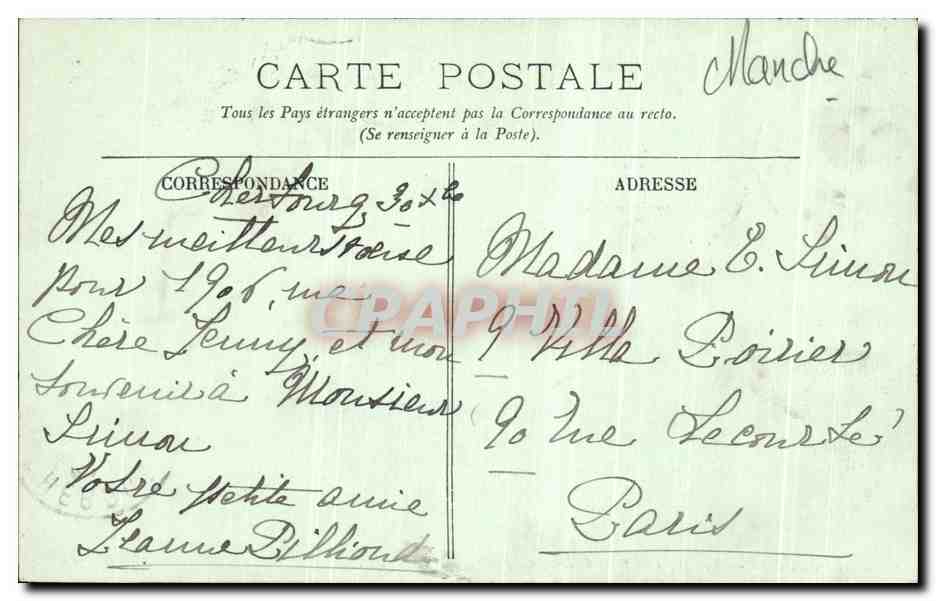 Manche
CARTE POSTALE
Tous les Pays étrangers n'acceptent pas la Correspondance au recto.
(Se renseigner à la Poste).
CORRESPONDANCE
Cherbourg, 30 Xbre
Mes meilleurs vœux
pour 1906, ma
Chère Jenny, et mon
souvenir à Monsieur
Simon
Votre petite amie
Jeanne
ADRESSE
Madame E. Simon
9 Villa Poirier
90 rue Lecourbe
Paris
CPAPHIL